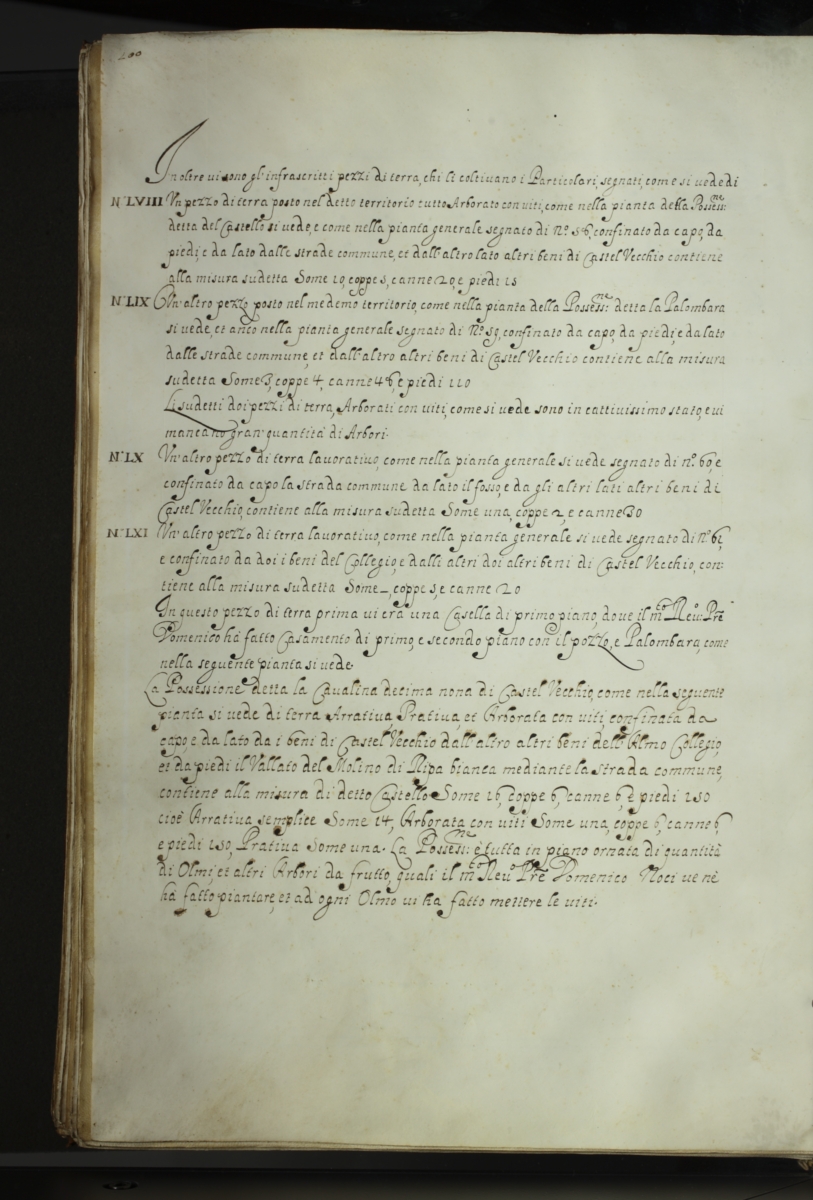 200
In oltre vi sono gl'infrascritti pezzi di terra, chi li coltivano i Particolari, segnati, come si vede di
N.º LVIII Vn pezzo di terra posto nel detto territorio tutto Arborato con viti, come nella pianta della Possess:ne
detta del Castello si vede, e come nella pianta generale segnato di Nº. 58, confinato da capo, da
piedi, e da lato dalle strade commune, et dall'altro lato altri beni di Castel Vecchio contiene
alla misura sudetta Some 10, coppe 5, canne 20, e piedi 15
N.º LIX Vn'altro pezzo posto nel medemo territorio, come nella pianta della Possess:ne detta la Palombara
si vede, et anco nella pianta generale segnato di Nº. 59, confinato da capo, da piedi, e da lato
dalle strade commune, et dall'altro altri beni di Castel Vecchio contiene alla misura
sudetta Some 3, coppe 4, canne 46, e piedi 110
Li sudetti doi pezzi di terra, Arborati con viti, come si vede sono in cattivissimo stato, e vi
mancano gran' quantità di Arbori.
N.º LX Vn'altro pezzo di terra lavorativo, come nella pianta generale si vede segnato di nº. 60, e
confinato da capo la strada commune da lato il fosso, e da gli altri lati altri beni di
Castel Vecchio, contiene alla misura sudetta Some una, coppe 2, e canne 30
N.º LXI Vn'altro pezzo di terra lavorativo, come nella pianta generale si vede segnato di nº. 61,
e confinato da doi i beni del Collegio, e dalli altri doi altri beni di Castel Vecchio, con:
tiene alla misura sudetta Some -, coppe 5, e canne 20
In questo pezzo di terra prima vi era una Casella di primo piano, dove il m.to Reu.º Pre
Domenico hà fatto Casamento di primo, e secondo piano con il pozzo, e Palombara, come
nella seguente pianta si vede.
La Possessione detta la Cavalina decima nona di Castel Vecchio, come nella seguente
pianta si vede di terra Arrativa, Prativa, et Arborata con viti confinata da
capo e da lato da i beni di Castel Vecchio dall'altro altri beni dell'Almo Collegio,
et da piedi il Vallato del Molino di Ripa bianca mediante la strada commune,
contiene alla misura di detto Castello Some 16, coppe 6, canne 6, e piedi 150
cioè Arrativa semplice Some 14, Arborata con viti Some una, coppe 6, canne 6
e piedi 150, Prativa Some una. La Possess:ne è tutta in piano ornata di quantità
di Olmi, et altri Arbori da frutto, quali il m.to Reu.º Pre Domenico Noci ve nè
hà fatto piantare, et ad ogni Olmo vi ha fatto mettere le viti.